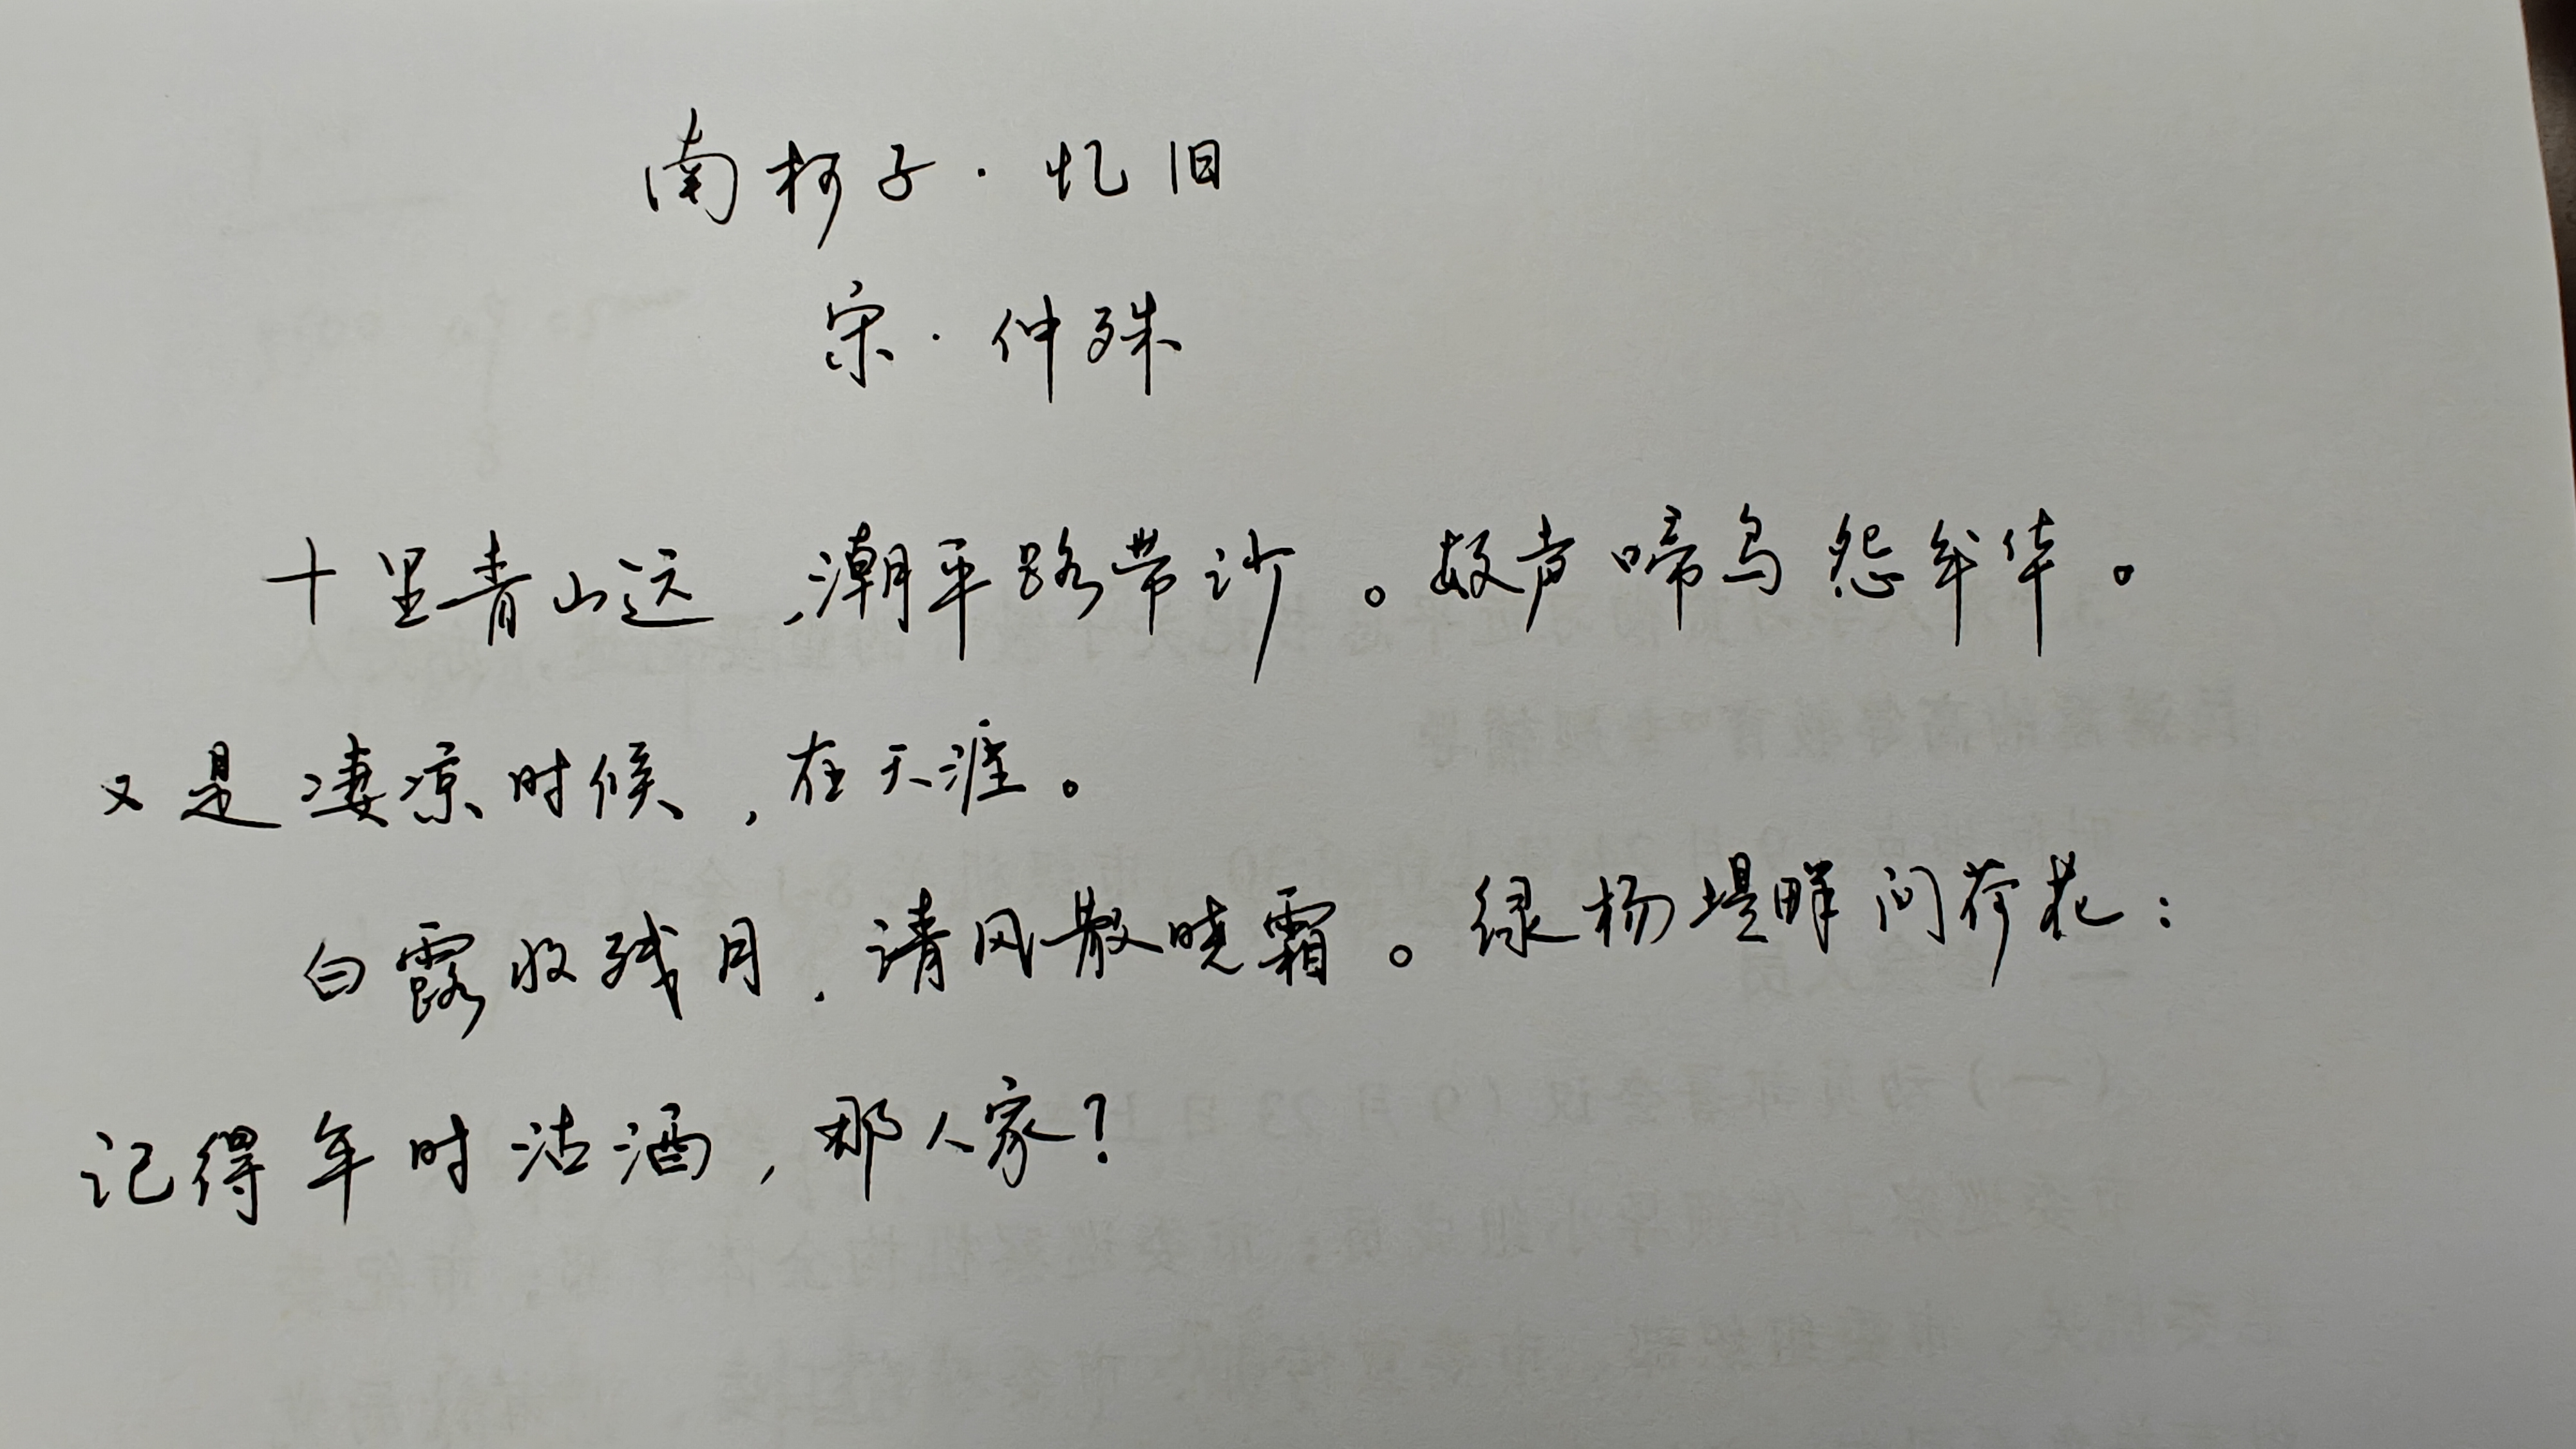 南柯子·忆旧
宋·仲殊
十里青山远,潮平路带沙。数声啼鸟怨年华。
又是凄凉时候,在天涯。
白露收残月,请风散晓霜。绿杨堤畔问荷花:
记得年时沽酒,那人家?